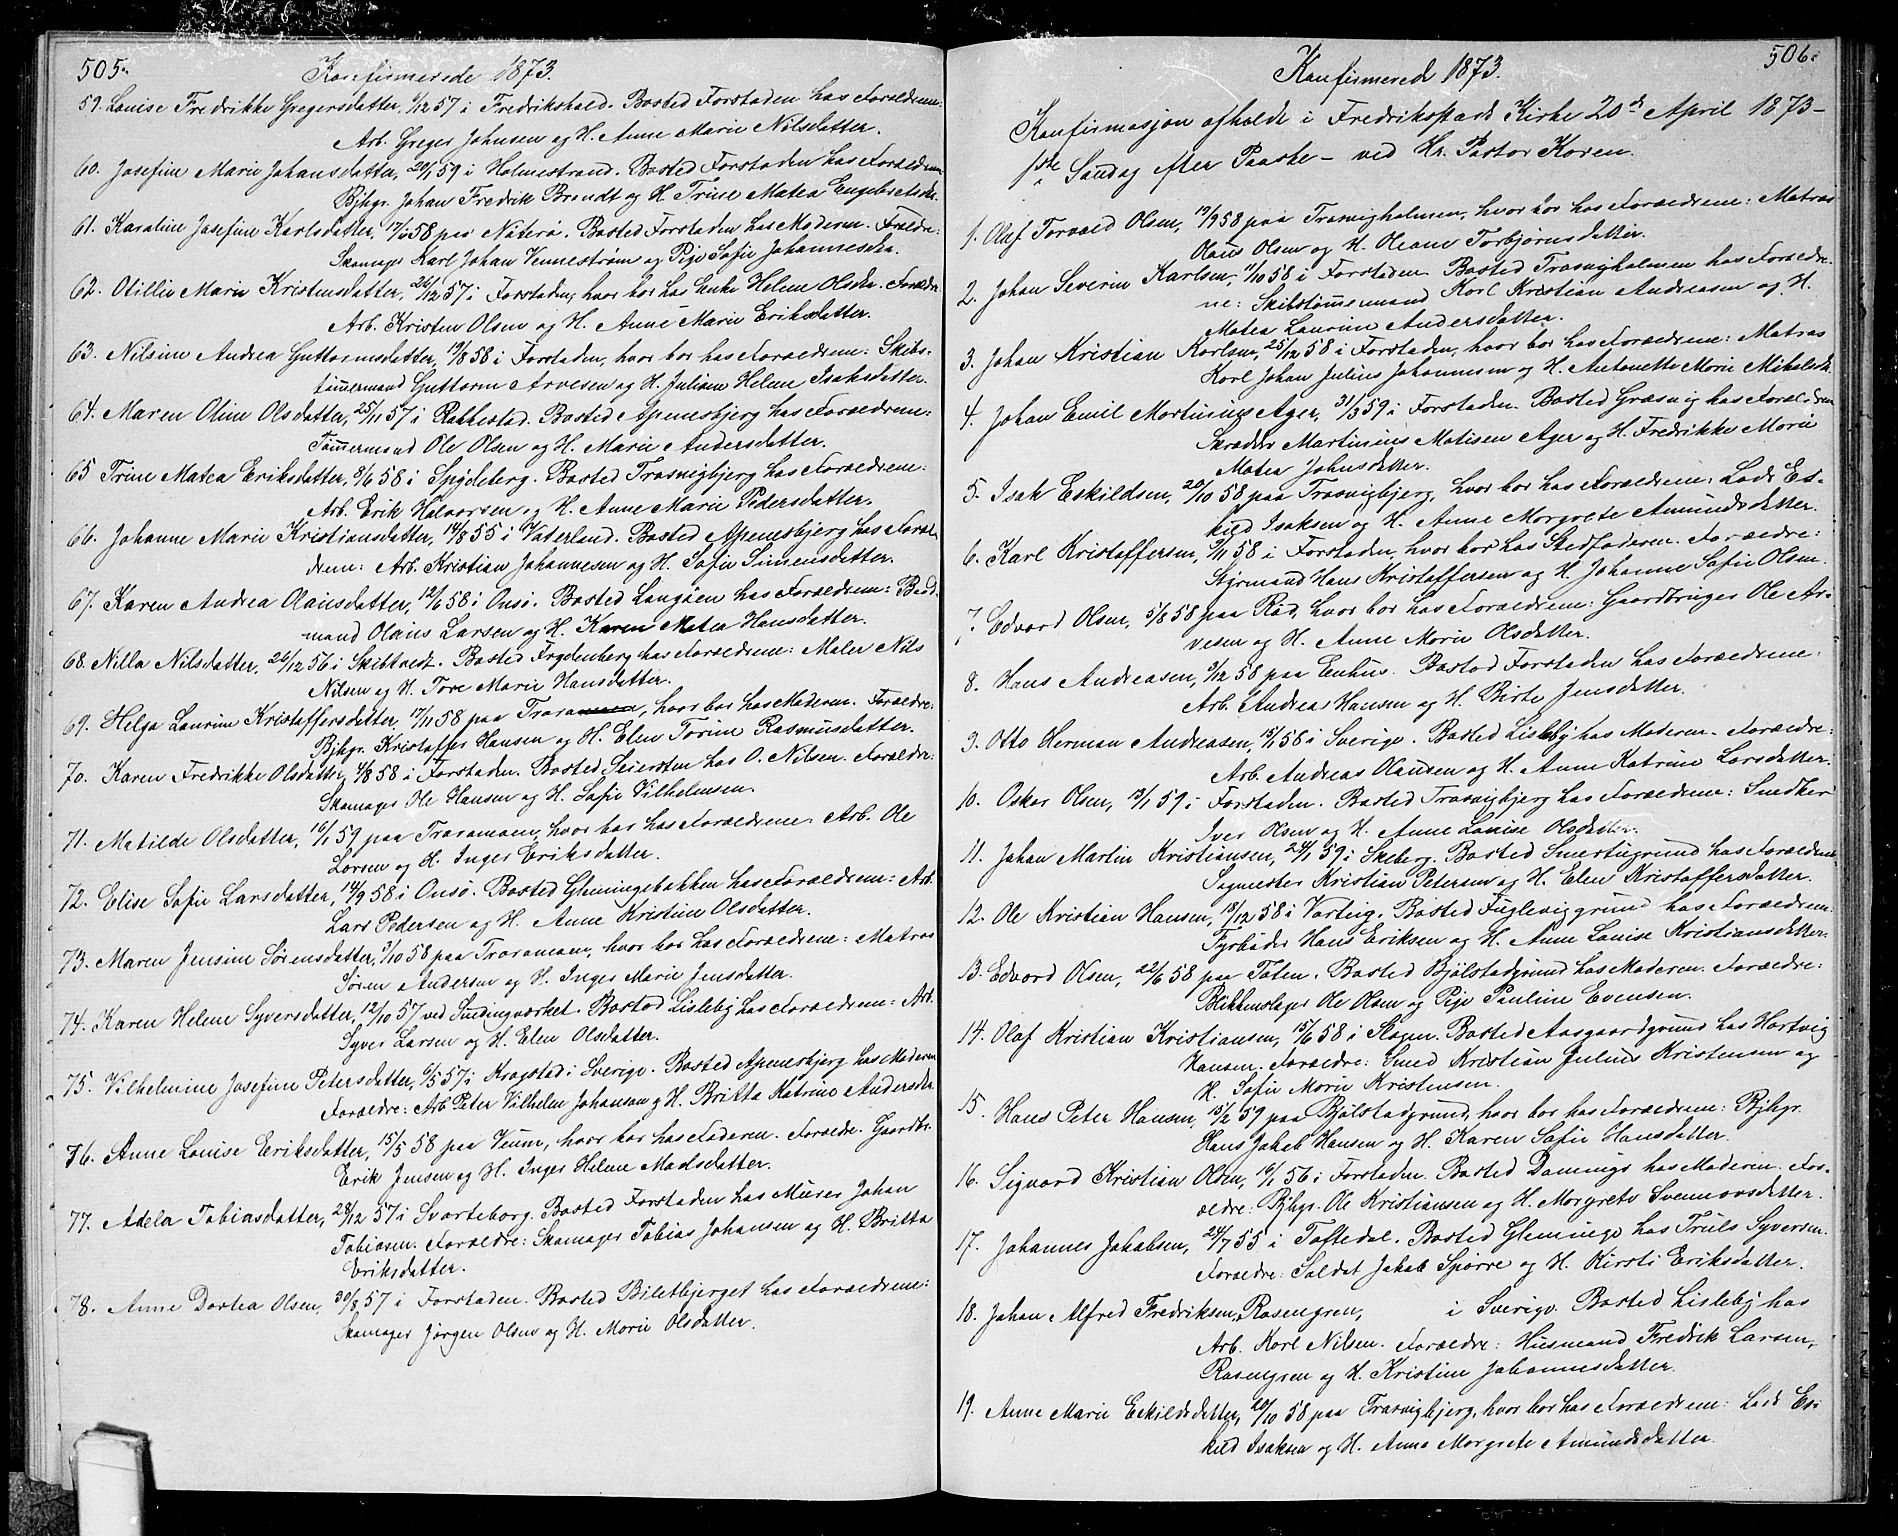 505.
Konfirmerede 1873.
59. Louise Fredrikke Gregersdatter, 6/12 57 i Fredrikshald. Bosted Forstaden hos Foræeldrene:
Arb. Greger Johnsen og H. Anne Marie Nilsdatter.
60. Josefine Marie Johansdatter, 20/1 59 i Holmestrand. Bosted Forstaden hos Foræeldrene
Bjhgr. Johan Fredrik Brendt og H Trine Matea Engebretsdtr.
61. Karoline Josefine Karlsdatter, 58 paa Nøterø. Bosted Forstaden hos Moderen. Forældre:
Skomager Karl Johan Vennestrøm og Pige Sofie Johannesdtr.
62. Otillie Marie Kristensdatter, 26/12 57 i Forstaden, hvor bor hos Enke Helene Olsdtr. Forældre
Arb. Kristen Olsen og H. Anne Marie Eriksdatter.
63. Nilsine Andrea Guttormsdatter, 19/8 58 i Forstaden, hvor bor hos Foræeldrene: Skibs-
tømmermand Guttorm Arvesen og H. Juliane Helene Isaksdatter.
64. Maren Oline Olsdatter, 25/11 57 i Rakkestad. Bosted Apenesbjerg hos Foræeldrene:
Tømmermand Ole Olsen og H. Marie Andersdatter.
65 Trine Matea Eriksdatter, 8/6 58 i Spydeberg. Bosted Trosvigbjerg hos Foræeldrene:
Arb. Erik Halvorsen og H. Anne Marie Pedersdatter.
66. Johanne Marie Kristiansdatter, 14/8 55 i Vaterland. Bosted Apenesbjerg hos Foræl-
drene: Arb. Kristian Johannesen og H. Sofie Simensdatter.
67. Karen Andrea Olausdatter, 12/6 58 i Onsø. Bosted Langøen hos Foræeldrene: Baad-
mand Olaus Larsen og H. Karen Matea Hansdatter.
68. Nilla Nilsdatter, 26/12 56 i Skibtvedt. Bosted Frydenberg hos Foræeldrene: Maler Nils
Nilsen og H. Tore Marie Hansdatter.
69. Helga Laurine Kristoffersdatter 17/11 58 paa Traramoen, hvor bor hos Moderen. Foræeldre:
Bjhgr. Kristoffer Hansen og H. Elen Torine Rasmusdatter.
70. Karen Fredrikke Olsdatter, 4/8 58 i Forstaden. Bosted Seiersten hos O. Nilsen. Foræeldre:
Skomager Ole Hansen og H. Sofie Vilhelmsen.
71. Matilde Olsdatter, 16/1 59 paa Traramoen, hvor bor hos Foræeldrene. Arb. Ole
Larsen og H. Inger Eriksdatter.
72. Elise Sofie Larsdatter, 14/9 58 i Onsø. Bosted Glemmingebakken hos Foræeldrene: Arb.
Lars Pedersen og H. Anne Kristine Olsdatter.
73. Maren Jensine Sørensdatter, 3/10 58 paa Traramoen, hvor bor hos Foræeldrene: Matros
Søren Andersen og H. Inger Marie Jensdatter.
74. Karen Helene Syversdatter, 12/10 57 ved Smdingværket. Bosted Lisleby hos Foræeldrene: Arb.
Syver Larsen og H. Elen Olsdatter.
75. Vilhelmine Josefine Petersdatter, 6/5 57 i Krogstad i Sverige. Bosted Apenesbjerg hos Moderen
Foræeldre: Arb Peter Vilhelm Johansen og H. Britta Katrine Andersdtr.
76. Anne Louise Eriksdatter, 15/5 58 paa Veum, hvor bor hos Faderen. Foræeldre. Gaardbr.
Erik Jensen og H. Inger Helene Madsdatter.
77. Adela Tobiasdatter, 28/12 57 i Svarteborg. Bosted Forstaden hos Murer Johan
Tobiasen. Foræeldre: Skomager Tobias Johansen og H. Britta
Eriksdatter.
78. Anne Dortea Olsen, 30/8 57 i Forstaden. Bosted Biletbjerget hos Foræeldrene:
Skomager Jørgen Olsen og H. Marie Olsdatter.
506.
Konfirmerede 1873.
Konfirmasjon afholdt i Fredrikstads Kirke 20de April 1873 –
1ste Søndag efter Paaske – ved Hr. Pastor Koren.
1. Olaf Torvald Olsen, 19/9 58 paa Trosvigholmen, hvor bor hos Foræeldrene: Matros
Olaus Olsen og H. Oleane Torbjørnsdatter.
2. Johan Severin Karlsen, 7/10 58 i Forstaden. Bosted Trosvigholmen hos Foræeldre-
ne: Skibstømmermand Karl Kristian Andreasen og H.
Matea Laurine Andersdatter.
3. Johan Kristian Karlsen, 25/12 58 i Forstaden, hvor bor hos Foræeldrene: Matros
Karl Johan Julius Johannesen og H. Antonette Marie Mikalsdtr.
4. Johan Emil Martinius Ager, 31/3 59 i Forstaden. Bosted Græsvig hos Foræeldrene
Skræder Martinius Matisen Ager og H. Fredrikke Marie
Matea Johnsdatter.
5. Isak Eskildsen, 20/10 58 paa Trosvigbjerg, hvor bor hos Foræeldrene: Lods Es-
kild Isaksen og H. Anne Margrete Amundsdatter.
6. Karl Kristoffersen, 9/11 58 i Forstaden, hvor bor hos Stedfaderen. Foræeldre:
Styrmand Hans Kristoffersen og H. Johanne Sofie Olsen.
7. Edvard Olsen, 5/8 58 paa Rød, hvor bor hos Foræeldrene: Gaardbruger Ole Ar-
vesen og H. Anne Marie Olsdatter.
8. Hans Andreasen, 9/12 58 paa Enhus. Bosted Forstaden hos Foræeldrene:
Arb. Andreas Hansen og H. Birte Jensdatter.
9. Otto Herman Andreasen, 15/1 58 i Sverige. Bosted Lisleby hos Moderen. Foræeldre:
Arb. Andreas Olausen og H. Anne Katrine Larsdatter.
10. Oskar Olsen, 13/1 59 i Forstaden. Bosted Trosvigbjerg hos Foræeldrene: Snedker
Iver Olsen og H. Anne Louise Olsdatter.
11. Johan Martin Kristiansen, 24/1 59 i Skeberg. Bosted Smertugrund hos Foræeldrene
Sagmester Kristian Petersen og H. Elen Kristoffersdatter.
12. Ole Kristian Hansen, 18/12 58 i Varteig. Bosted Fuglevig grund hos Foræeldrene:
Fyrbøder Hans Eriksen og H. Anne Louise Kristiansdatter.
13. Edvard Olsen, 22/6 58 paa Toten. Bosted Bjølstadgrund hos Moderen. Foræeldre:
Blikkenslager Ole Olsen og Pige Pauline Evensen.
14. Olaf Kristian Kristiansen, 15/6 58 i Skagen. Bosted Aasgaardgrund hos Hartvig
Hansen. Foræeldre: Smed Kristian Julius Kristensen og
H. Sofie Marie Kristensen.
15. Hans Peter Hansen, 15/2 59 paa Bjølstadgrund, hvor bor hos Foræeldrene: Bjhgr.
Hans Jakob Hansen og H. Karen Sofie Hansdatter.
16. Sigvard Kristian Olsen, 16/1 56 i Forstaden. Bosted Damings hos Moderen. For-
ældre: Bjhgr. Ole Kristiansen og H. Margrete Svennonsdatter.
17. Johannes Jakobsen, 24/7 55 i Toftedal. Bosted Glemminge hos Truls Syversen.
Foræeldre: Soldat Jakob Spørre og H. Kirsti Eriksdatter.
18. Johan Alfred Fredriksen, Rosengren, i Sverige. Bosted Lisleby hos
Arb. Karl Nilsen. Foræeldre: Husmand Fredrik Larsen,
Rosengren og H. Kristine Johannesdatter.
19. Anne Marie Eskildsdatter, 20/10 58 paa Trosvigbjerg, hvor bor hos Foræeldrene: Lods Es-
kild Isaksen og H. Anne Margrete Amundsdatter.